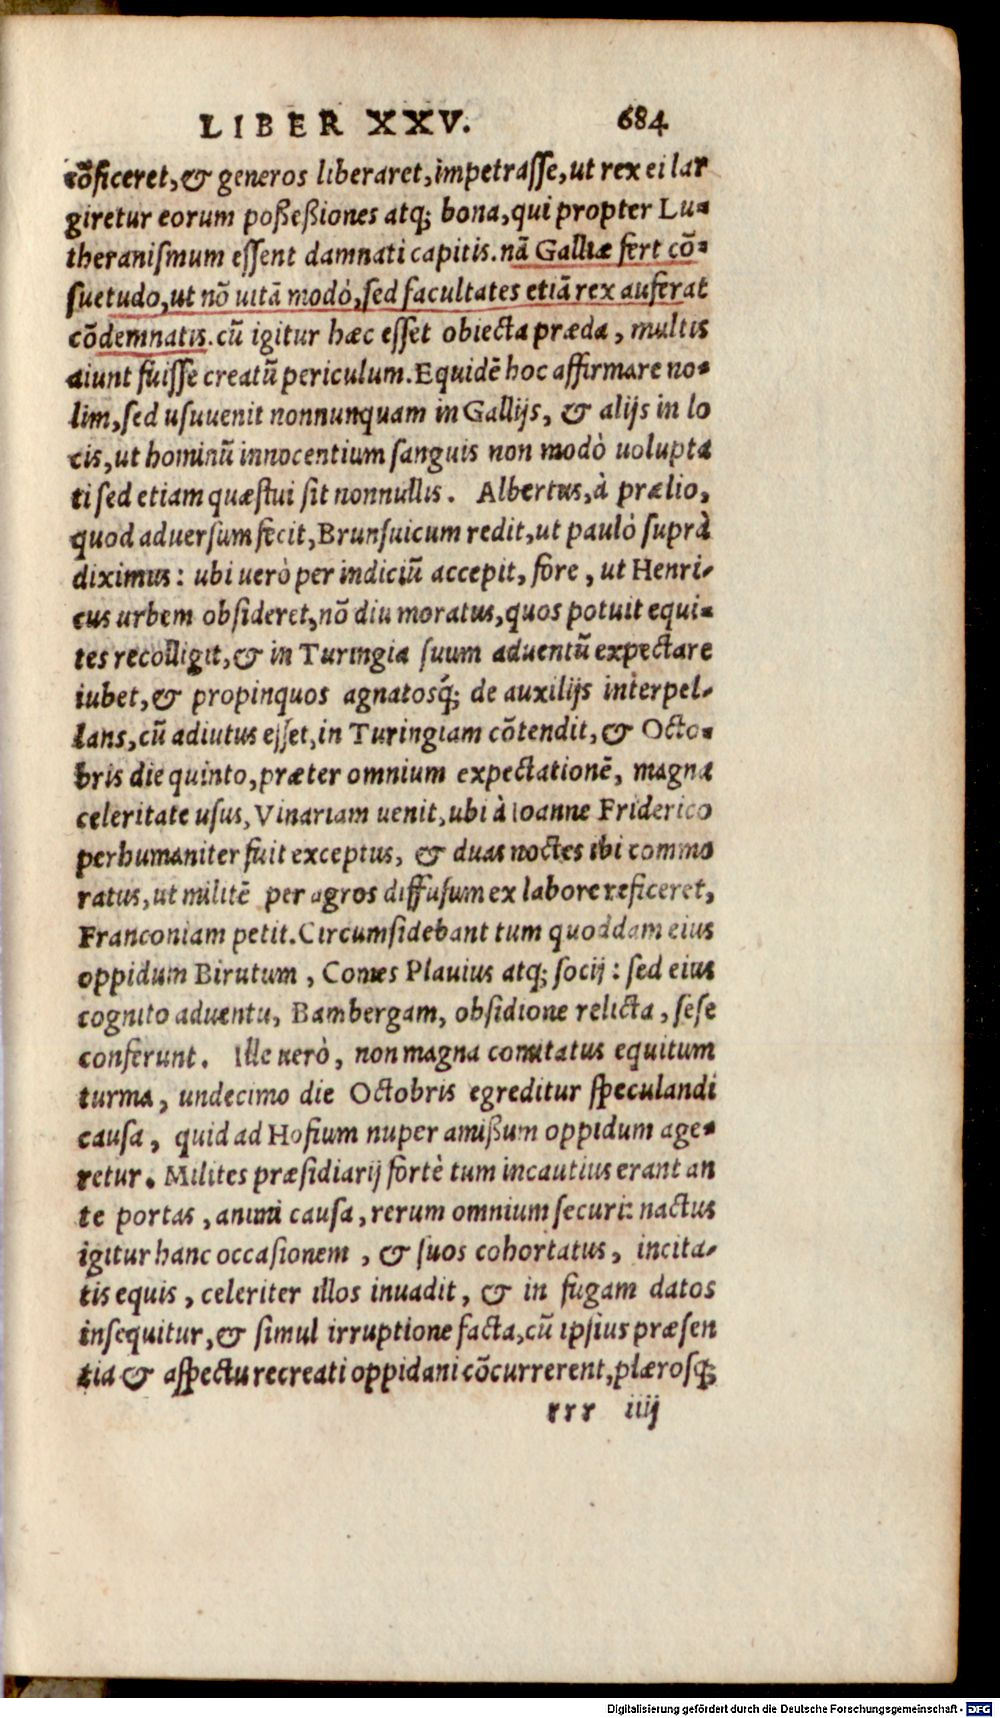 LIBER XXV. 684
cõficeret, & generos liberaret, impetrasse, ut rex ei lar
giretur eorum poßeßiones atq; bona, qui propter Lu-
theranismum essent damnati capitis. nã Galliæ fert cõ-
suetudo, ut nõ uitã modò, sed facultates etiã rex auferat
cõdemnatis. cũ igitur hæc esset obiecta præda, multis
aiunt fuisse creatũ periculum. Equidẽ hoc affirmare no-
lim, sed usuuenit nonnunquam in Gallijs, & alijs in lo
cis, ut hominũ innocentium sanguis non modò uolupta
ti sed etiam quæstui sit nonnullis. Albertus, à prælio,
quod aduersum fecit, Brunsuicum redit, ut paulò suprà
diximus: ubi uerò per indiciũ accepit, fore, ut Henri-
cus urbem obsideret, nõ diu moratus, quos potuit equi-
tes recolligit, & in Turingia suum aduentũ expectare
iubet, & propinquos agnatosq́; de auxilijs interpel-
lans, cũ adiutus esset, in Turingiam cõtendit, & Octo-
bris die quinto, præter omnium expectationẽ, magna
celeritate usus, Vinariam uenit, ubi à Ioanne Friderico
perhumaniter fuit exceptus, & duas noctes ibi commo
ratus, ut militẽ per agros diffusum ex labore reficeret,
Franconiam petit. Circumsidebant tum quoddam eius
oppidum Birutum, Comes Plauius atq; socij: sed eius
cognito aduentu, Bambergam, obsidione relicta, sese
conferunt. Ille uerò, non magna comitatus equitum
turma, undecimo die Octobris egreditur speculandi
causa, quid ad Hofium nuper amißum oppidum age-
retur. Milites præsidiarij fortè tum incautius erant an
te portas, animi causa, rerum omnium securi: nactus
igitur hanc occasionem, & suos cohortatus, incita-
tis equis, celeriter illos inuadit, & in fugam datos
insequitur, & simul irruptione facta, cũ ipsius præsen
tia & aspectu recreati oppidani cõcurrerent, plærosq;
rrr iiij
Digitalisierung gefördert durch die Deutsche Forschungsgemeinschaft - DFG